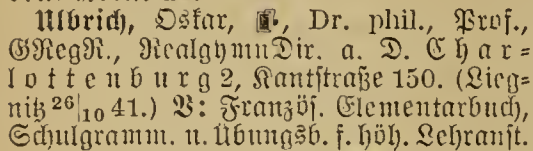 Ulbrich, Oskar, Dr. phil., Prof.,
GRegR., RealgymnDir. a. D. Char=
lottenburg 2, Kantstraße 150. (Lieg=
nitz 26|10 41.) V: Französ. Elementarbuch,
Schulgramm. u. Übungsb. f. höh. Lehranst.